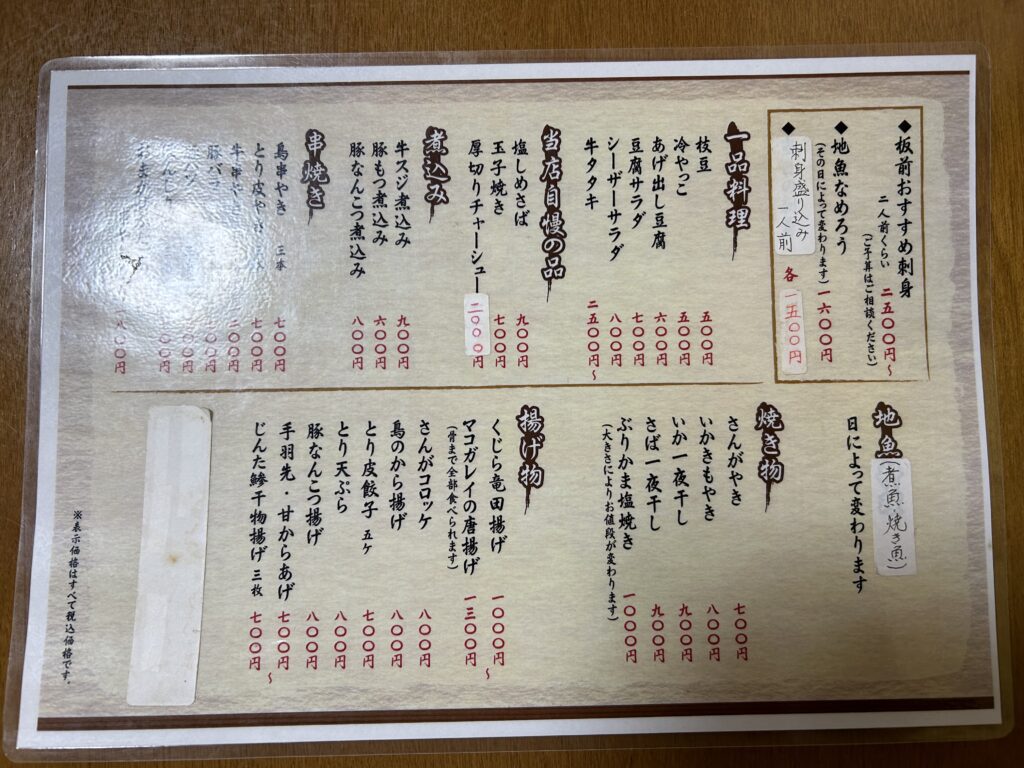 ◆板前おすすめ刺身
二人前くらい 二五〇〇円～
(ご予算はご相談ください)
◆地魚なめろう 一六〇〇円
(その日によって変わります)
◆刺身盛り込み 一人前 各 一五〇〇円
一品料理
枝豆 五〇〇円
冷やっこ 五〇〇円
あげ出し豆腐 六〇〇円
豆腐サラダ 七〇〇円
シーザーサラダ 八〇〇円
牛タタキ 二五〇〇円～
当店自慢の品
塩しめさば 九〇〇円
玉子焼き 七〇〇円
厚切りチャーシュー 二〇〇〇円
煮込み
牛スジ煮込み 九〇〇円
豚もつ煮込み 六〇〇円
豚なんこつ煮込み 八〇〇円
串焼き
鳥串やき 三本 七〇〇円
とり皮や 七〇〇円
牛串や 二〇〇円
豚バラ
地魚(煮魚・焼き魚)
日によって変わります
焼き物
さんがやき 七〇〇円
いかきもやき 八〇〇円
いか一夜干し 九〇〇円
さば一夜干し 九〇〇円
ぶりかま塩焼き 一〇〇〇円
(大きさによりお値段が変わります)
揚げ物
くじら竜田揚げ 一〇〇〇円～
マコガレイの唐揚げ 一三〇〇円～
(骨まで全部食べられます)
さんがコロッケ 八〇〇円
鳥のから揚げ 八〇〇円
とり皮餃子 五ヶ 七〇〇円
とり天ぷら 八〇〇円
豚なんこつ揚げ 八〇〇円
手羽先・甘からあげ 七〇〇円～
じんた鯵干物揚げ 三枚 七〇〇円
※表示価格はすべて税込価格です。